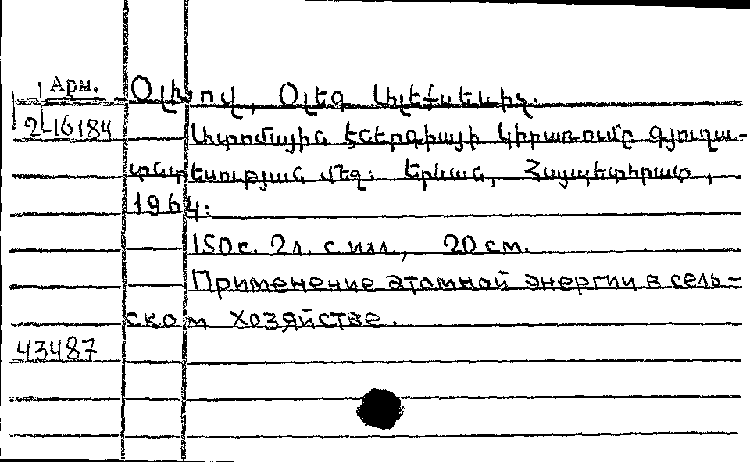 Арм.
Օլխով, Օլեգ Ալեքսեևիչ.
2-16184
Ատոմային էներգիայի կիրառումը գյուղա-
տնտեսության մեջ: Երևան, Հայպետհրատ,
1964:
150 с. 2 л. с илл, 20 см.
Применение атомной энергии в сель-
ском хозяйстве.
43487